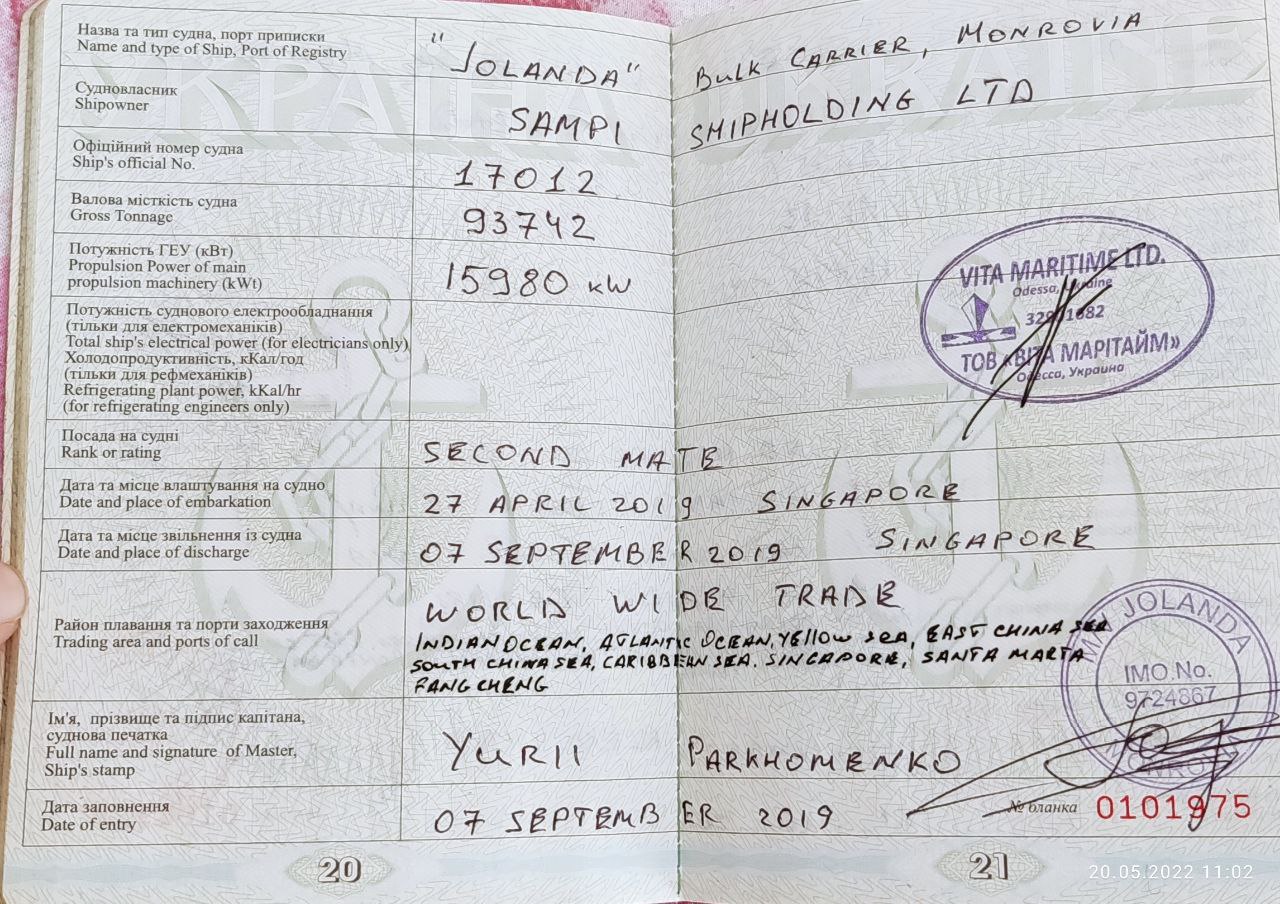 Назва та тип судна, порт приписки
Name and type of Ship, Port of Registry
"JOLANDA" BULK CARRIER, MONROVIA
Судновласник
Shipowner
SAMPI SHIPHOLDING LTD
Офіційний номер судна
Ship's official No.
17012
Валова місткість судна
Gross Tonnage
93742
Потужність ГЕУ (кВт)
Propulsion Power of main
propulsion machinery (kWt)
15980 KW
Потужність суднового електрообладнання
(тільки для електромеханіків)
Total ship's electrical power (for electricians only)
Холодопродуктивність, кКал/год
(тільки для рефмеханіків)
Refrigerating plant power, kKal/hr
(for refrigerating engineers only)
VITA MARITIME LTD.
Odessa, Ukraine
ТОВ «ВІТА МАРІТАЙМ»
Одесса, Украина
Посада на судні
Rank or rating
SECOND MATE
Дата та місце влаштування на судно
Date and place of embarkation
27 APRIL 2019 SINGAPORE
Дата та місце звільнення із судна
Date and place of discharge
07 SEPTEMBER 2019 SINGAPORE
Район плавання та порти заходження
Trading area and ports of call
WORLD WIDE TRADE
INDIAN OCEAN, ATLANTIC OCEAN, YELLOW SEA, EAST CHINA SEA
SOUTH CHINA SEA, CARIBBEAN SEA. SINGAPORE, SANTA MARTA
FANGCHENG
M/V JOLANDA
IMO.No.
9724867
Ім'я, прізвище та підпис капітана,
суднова печатка
Full name and signature of Master,
Ship's stamp
YURII PARKHOMENKO
Дата заповнення
Date of entry
07 SEPTEMBER 2019
№ бланка 0101975
20
21
20.05.2022 11:02